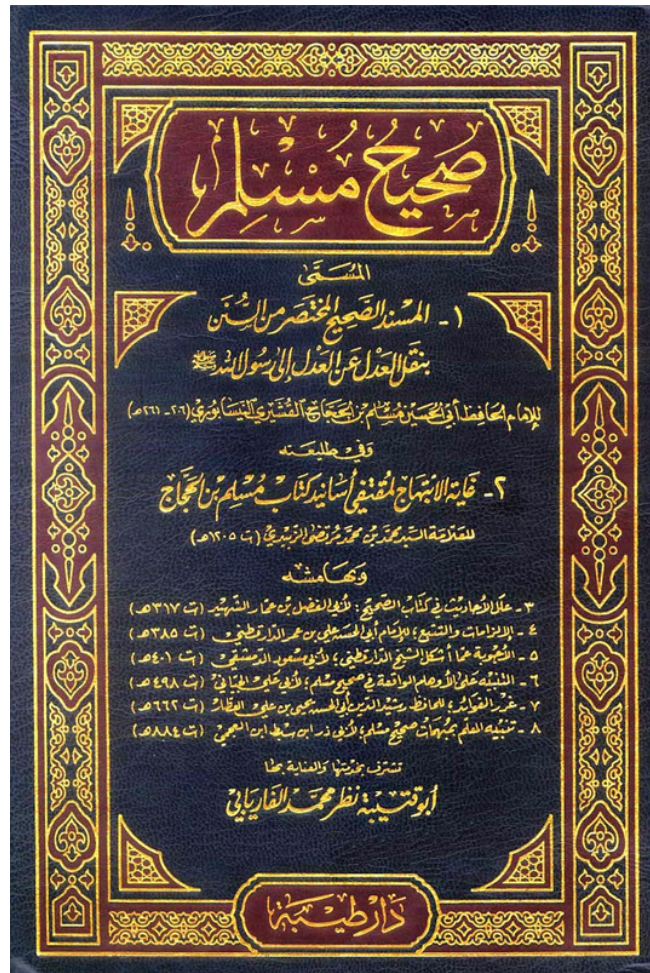 صحيح مسلم
المسمى
١- المسند الصحيح المختصر من السنن
بنقل العدل عن العدل إلى رسول الله ﷺ
للإمام الحافظ أبي الحسين مسلم بن الحجاج القشيري النيسابوري (٢٠٦-٢٦١هـ)
وفي طليعته
٢- غاية الابتهاج لمقتفي أسانيد كتاب مسلم بن الحجاج
للعلامة السيد محمد بن محمد مرتضى الزبيدي (ت ١٢٠٥هـ)
وبهامشه
٣- علل الأحاديث في كتاب الصحيح؛ لأبي الفضل بن عمار الشهيد (ت ٣١٧هـ)
٤- الإلزامات والتتبع؛ للإمام أبي الحسن علي بن عمر الدارقطني (ت ٣٨٥هـ)
٥- الأجوبة عما أشكل الشيخ الدارقطني؛ لأبي مسعود الدمشقي (ت ٤٠١هـ)
٦- التنبيه على الأوهام الواقعة في صحيح مسلم؛ لأبي علي الجياني (ت ٤٩٨هـ)
٧- غرر الفوائد؛ للحافظ رشيد الدين أبي الحسن يحيى بن علي العطار (ت ٦٦٢هـ)
٨- تنبيه المعلم بمبهمات صحيح مسلم؛ لأبي ذر ابن سبط ابن العجمي (ت ٨٨٤هـ)
تشرف بخدمتها والعناية بها
أبو قتيبة نظر محمد الفاريابي
دار طيبة